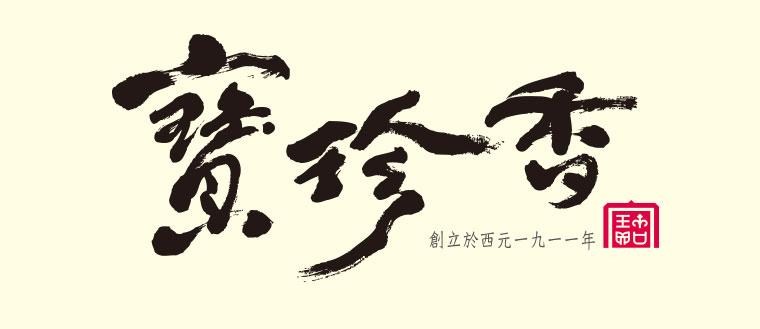 寶珍香
創立於西元一九一一年